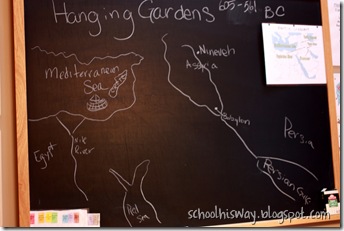 Hanging Gardens 605-561 BC
Nineveh
Assyria
Mediterranean
Sea
Babylon
Persia
Egypt
Nile
River
Persian Gulf
Red
Sea
schoolhisway.blogspot.com